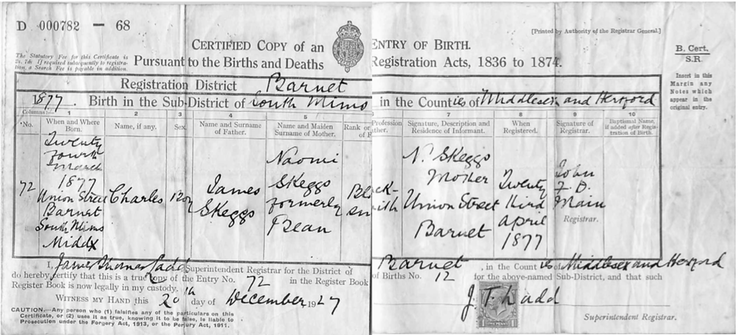 D 000782 — 68
[Printed by Authority of the Registrar General.]
CERTIFIED COPY of an ENTRY OF BIRTH.
The Statutory Fee for this Certificate is
Pursuant to the Births and Deaths Registration Acts, 1836 to 1874.
B. Cert.
S.R.
Registration District Barnet
Insert in this Margin any Notes which appear in the original entry.
1877. Birth in the Sub-District of South Mims in the Counties of Middlesex and Hertford
Columns:— 2 3 4 5 6 7 8 9 10
No. When and Where Born. Name, if any. Sex. Name and Surname of Father. Name and Maiden Surname of Mother. Rank or Profession of Father. Signature, Description and Residence of Informant. When Registered. Signature of Registrar. Baptismal Name if added after Registration of Birth.
72 Twenty fourth March 1877 Union Street Barnet South Mims Middx Charles Boy James Skeggs Naomi Skeggs formerly Dean N. Skeggs Mother Union Street Barnet Twenty third April 1877 John F. D. Main Registrar.
I, James Thomas Ladd Superintendent Registrar for the District of Barnet, in the Counties Middlesex and Hertford
do hereby certify that this is a true copy of the Entry No. 72 in the Register Book of Births No. 12 for the above-named Sub-District, and that such
Register Book is now legally in my custody.
WITNESS MY HAND this 20th day of December 1927 J. T. Ladd
Superintendent Registrar.
CAUTION.—Any person who (1) falsifies any of the particulars on this
Certificate, or (2) uses it as true, knowing it to be false, is liable to
Prosecution under the Forgery Act, 1913, or the Perjury Act, 1911.